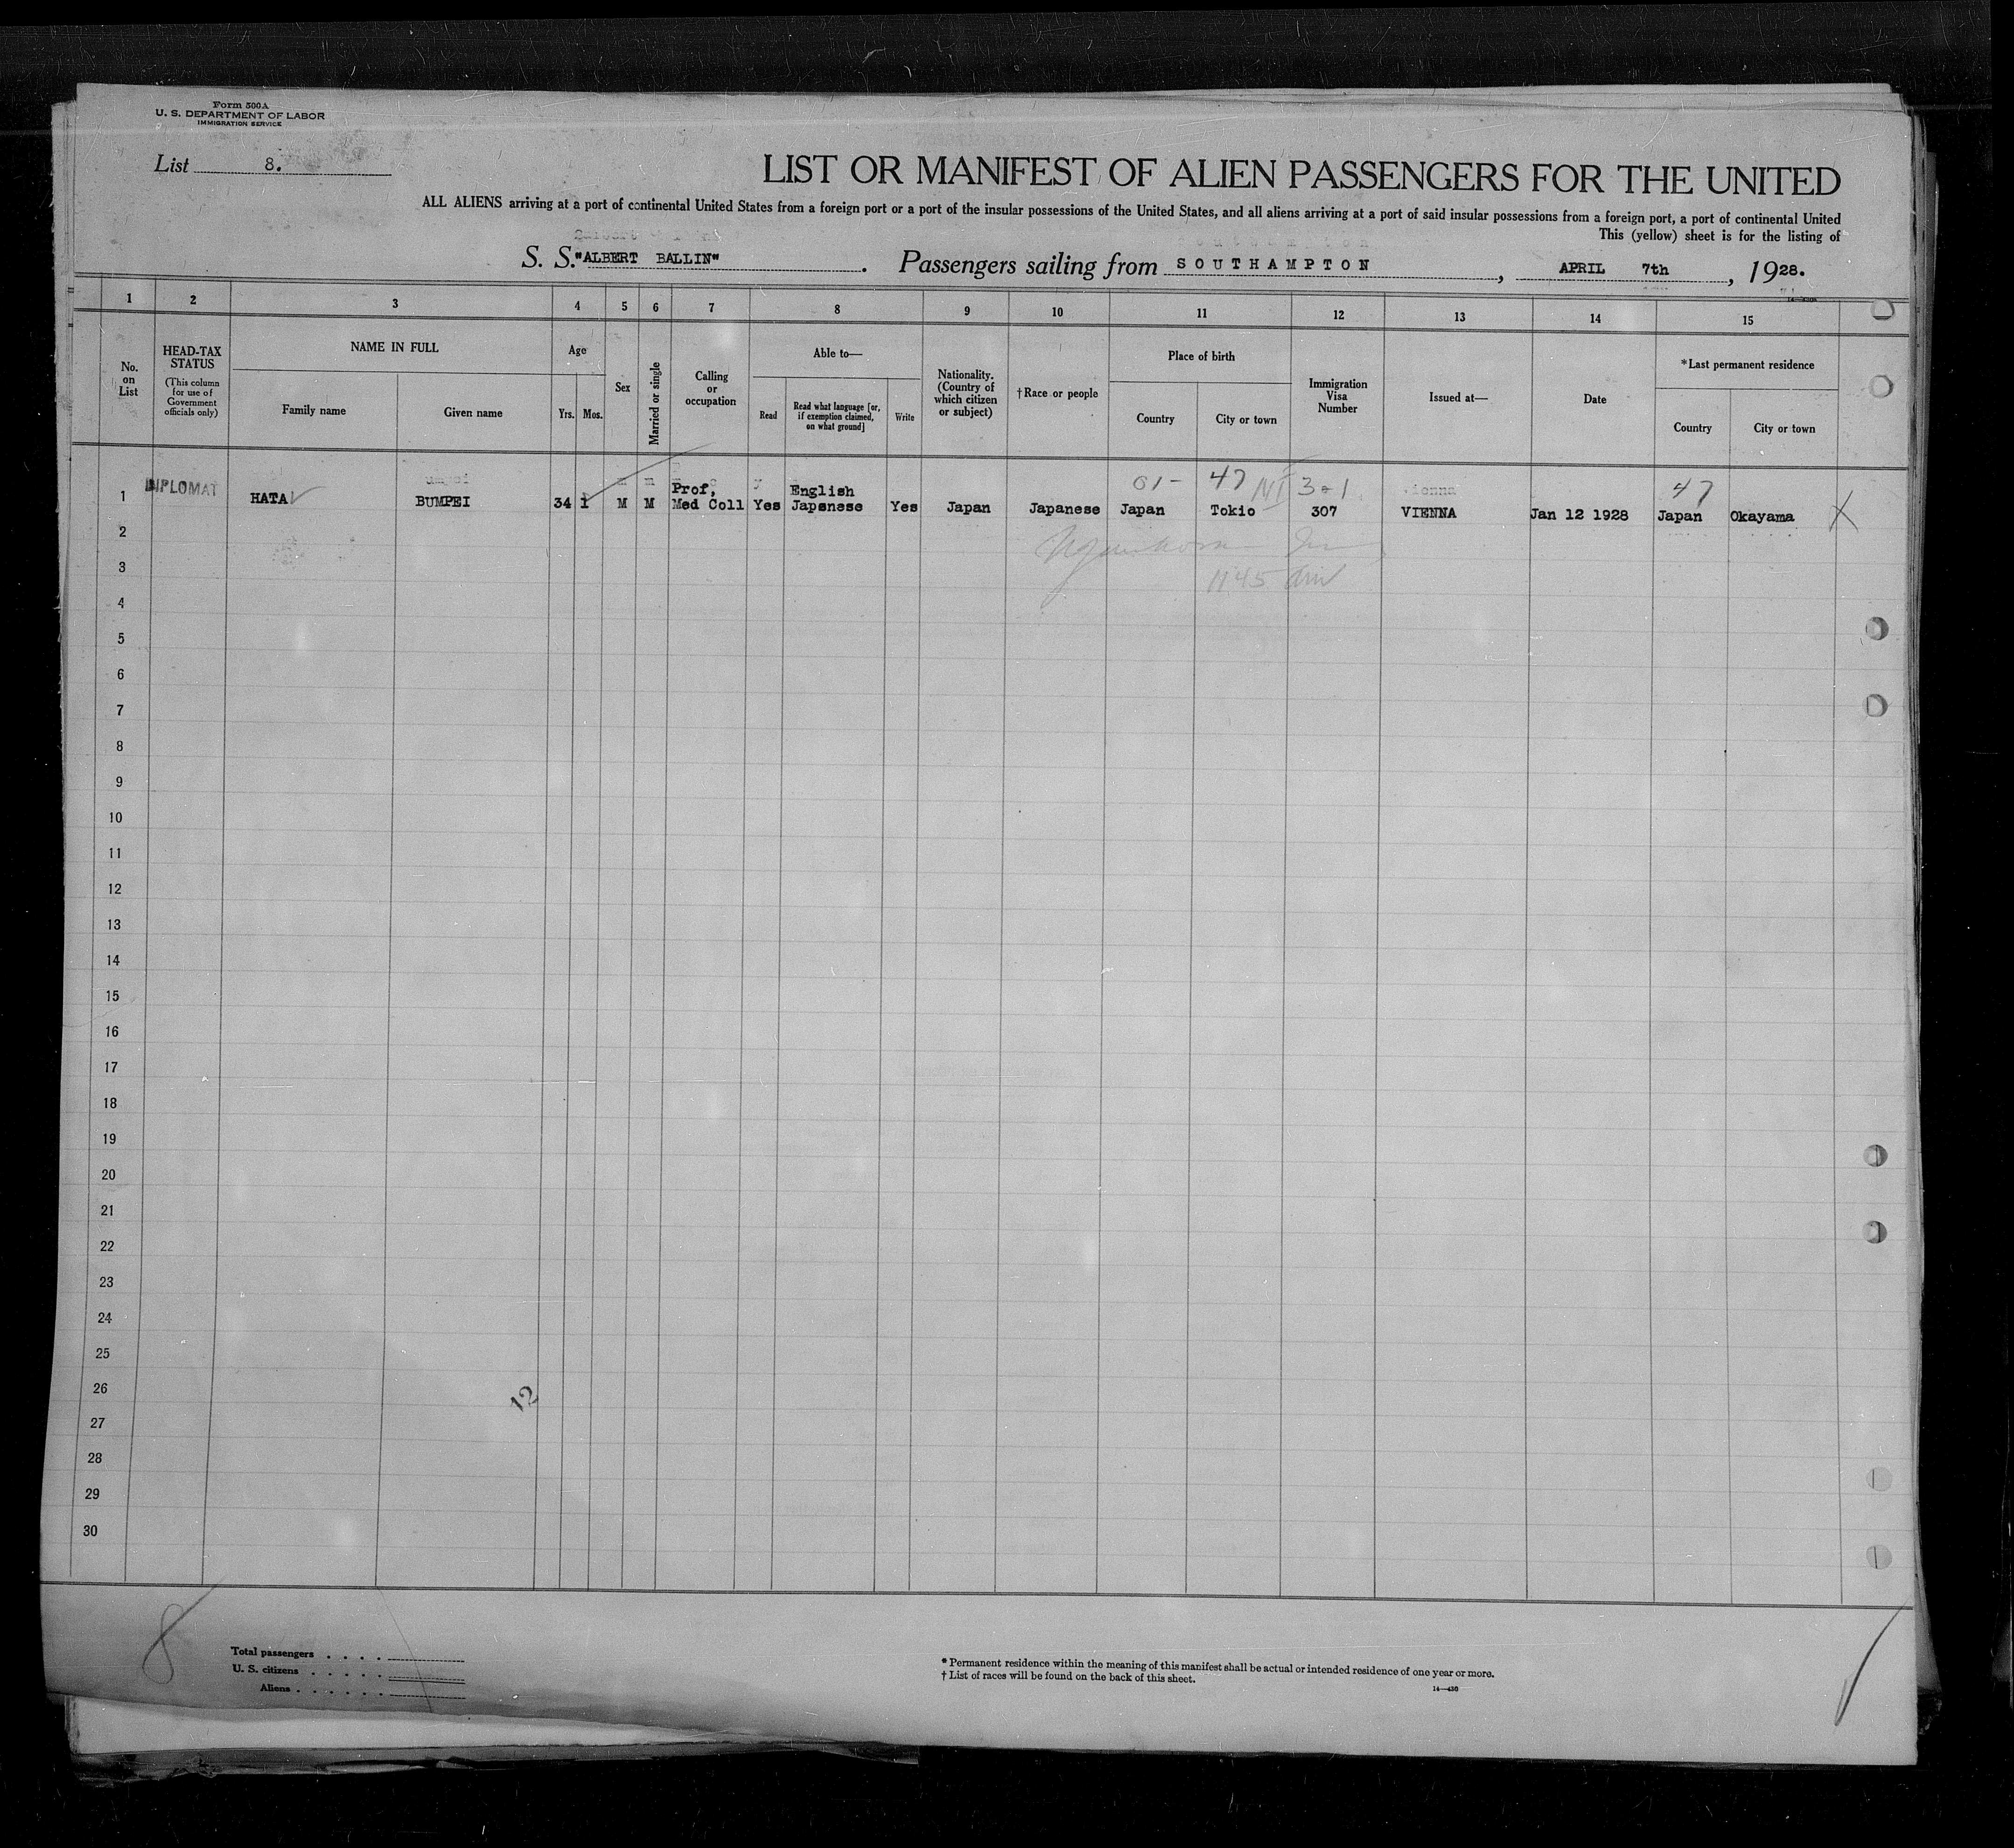 Form 500A
U. S. DEPARTMENT OF LABOR
IMMIGRATION SERVICE
List 8.
LIST OR MANIFEST OF ALIEN PASSENGERS FOR THE UNITED
ALL ALIENS arriving at a port of continental United States from a foreign port or a port of the insular possessions of the United States, and all aliens arriving at a port of said insular possessions from a foreign port, a port of continental United
This (yellow) sheet is for the listing of
S. S. "ALBERT BALLIN". Passengers sailing from SOUTHAMPTON, APRIL 7th, 1928.
1 2 3 4 5 6 7 8 9 10 11 12 13 14 15
No. on List
HEAD-TAX STATUS
(This column for use of Government officials only)
NAME IN FULL
Family name
Given name
Age
Yrs.
Mos.
Sex
Married or single
Calling or occupation
Able to—
Read
Read what language [or, if exemption claimed, on what ground]
Write
Nationality. (Country of which citizen or subject)
†Race or people
Place of birth
Country
City or town
Immigration Visa Number
Issued at—
Date
*Last permanent residence
Country
City or town
01- 47 NI 3-1 47
1 DIPLOMAT HATA BUMPEI 34 1 M M Prof, Med Coll Yes English Japanese Yes Japan Japanese Japan Tokio 307 VIENNA Jan 12 1928 Japan Okayama X
2
3 1145 am
4
5
6
7
8
9
10
11
12
13
14
15
16
17
18
19
20
21
22
23
24
25
26 12
27
28
29
30
8
Total passengers
U. S. citizens
Aliens
* Permanent residence within the meaning of this manifest shall be actual or intended residence of one year or more.
† List of races will be found on the back of this sheet.
14—430